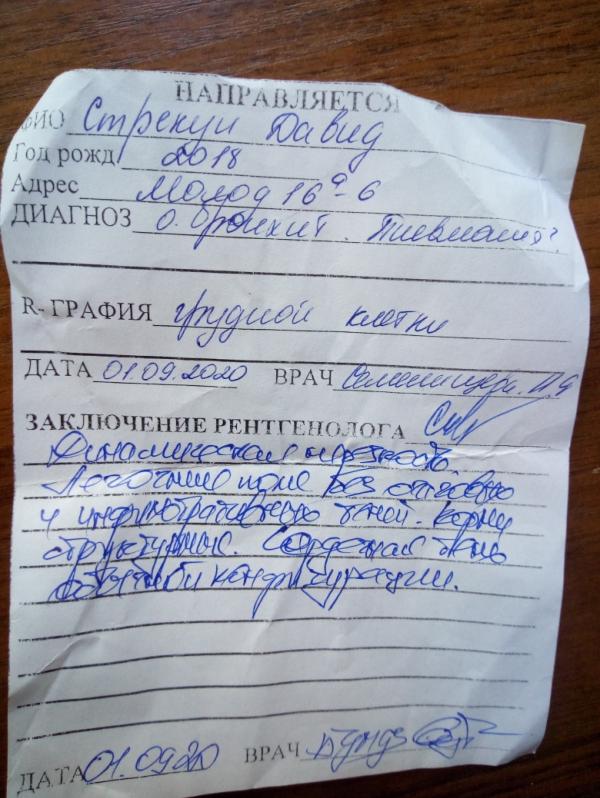 НАПРАВЛЯЕТСЯ
ФИО Стрекун Давид
Год рожд 2018
Адрес Молод 16а-6
ДИАГНОЗ о. бронхит. Пневмония?
R- ГРАФИЯ грудной клетки
ДАТА 01.09.2020 ВРАЧ
ЗАКЛЮЧЕНИЕ РЕНТГЕНОЛОГА
Динамическая нерезкость
Легочные поля без очаговых
и инфильтративных теней. Корни
структурные. Сердечная тень
обычной конфигурации.
ДАТА 01.0920 ВРАЧ